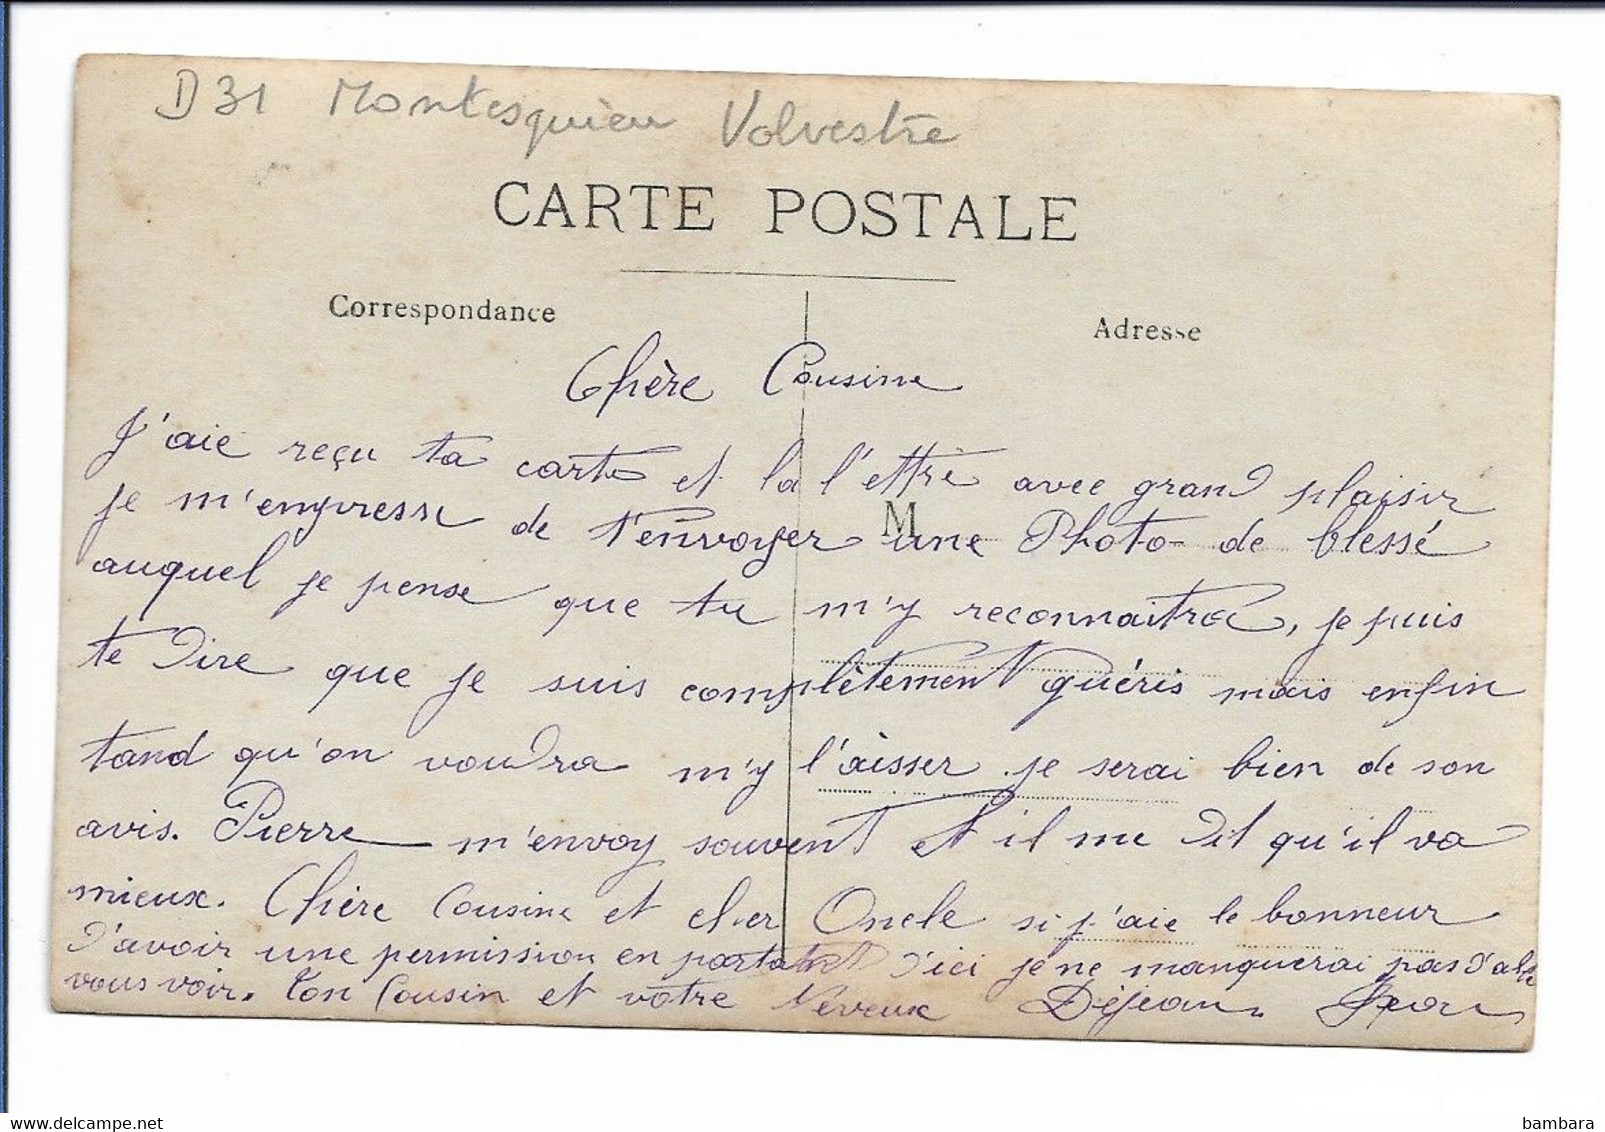 D31 Montesquieu Volvestre
CARTE POSTALE
Correspondance
Adresse
Chère Cousine
J'aie reçu ta carte et la l'ettre avec grand plaisir
je m'empresse de t'envoyer une Photo de blessé
M
auquel je pense que tu m'y reconnaitra, je puis
te dire que je suis complètement guéris mais enfin
tand qu'on voudra m'y l'aisser je serai bien de son
avis. Pierre m'envoy souvent et il me dit qu'il va
mieux. Chère Cousine et cher Oncle si j'aie le bonneur
d'avoir une permission en partant d'ici je ne manquerai pas d'alle
vous voir. Ton Cousin et votre Neveux Déjean Jean
bambara